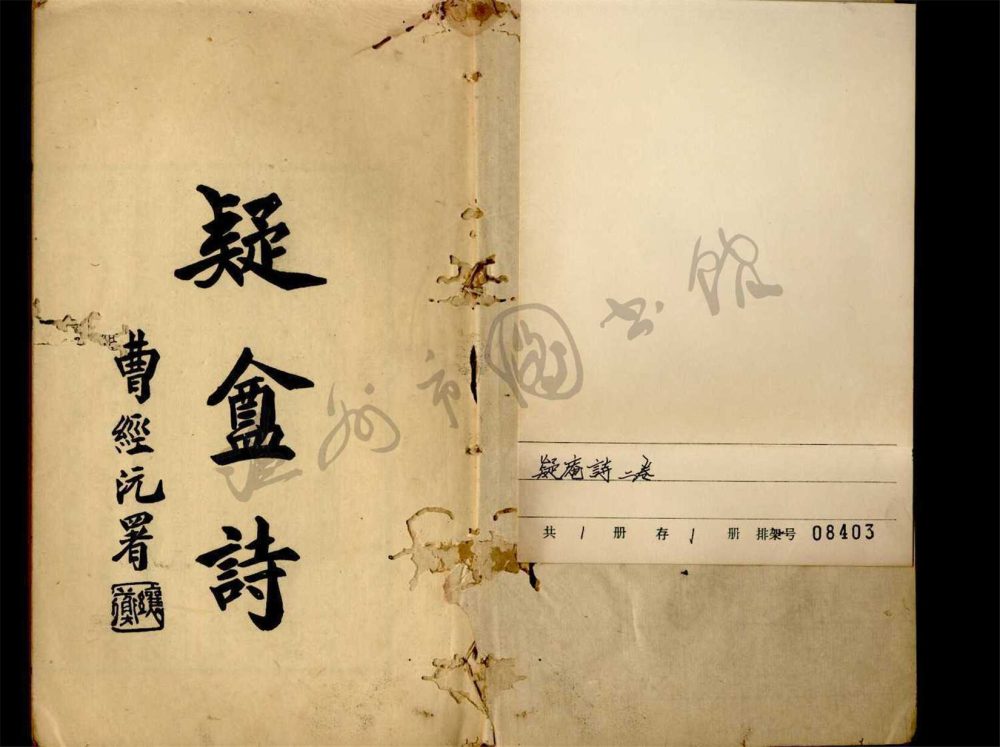 疑盦詩
曹經沅署
疑庵詩 二卷
共 1 册 存 1 册 排架号 08403
州市圖书館